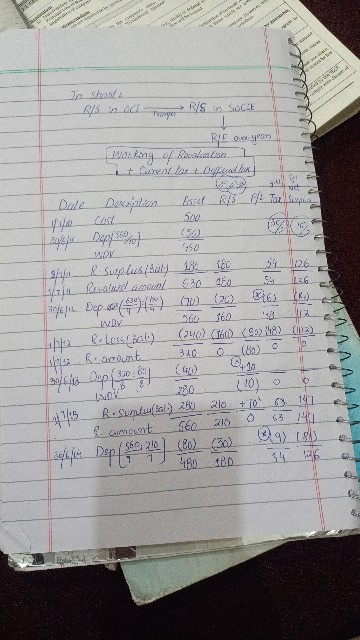 In short:
R/S in OCI → R/S in SOCIE
Transfer
↓
R/E over years
Working of Revaluation
+ Current tax + Deferred tax
Date Description Asset R/S P/L Tax Surplus
1/7/10 Cost 500
30/6/11 Dep [500/10] (50)
WDV 450
1/7/11 R. Surplus (Bal) 180 180 54 126
1/7/11 Revalued amount 630 180 54 126
30/6/12 Dep (630/9) (180/9) (70) (20) (6) (14)
WDV 560 160 48 112
1/7/12 R. Loss (Bal) (240) (160) (80) (48) (112)
1/7/12 R. amount 320 0 (80) 0 0
30/6/13 Dep [320/8, 80/8] (40) +10
WDV 280 (70) 0 0
1/7/13 R. Surplus (Bal) 280 210 +70 63 147
R. amount 560 210 0 63 147
30/6/14 Dep [560/7, 210/7] (80) (30) (9) (21)
480 180 54 126